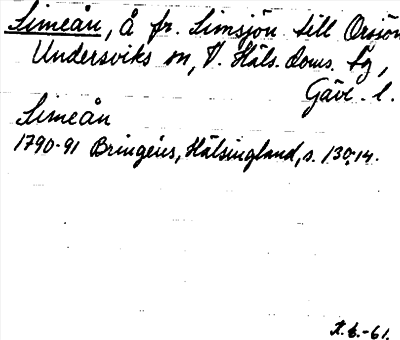 Simeån, Å fr. Simsjön till Orsjön
Undersviks sn, V. Häls. doms. tg,
Gävl. l.
Simeån
1790-91 Bringéus, Hälsingland, s. 130:14.